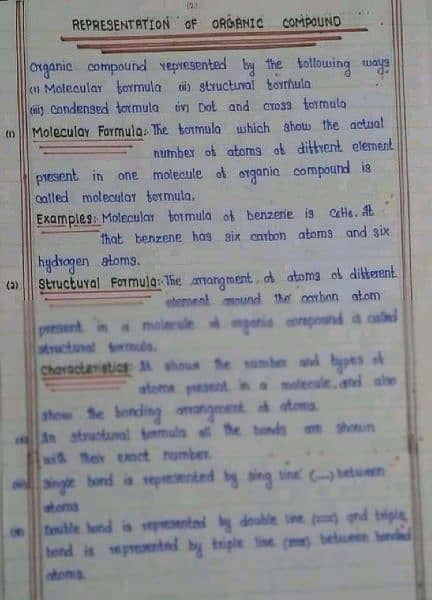 (2)
REPRESENTATION OF ORGANIC COMPOUND
Organic compound represented by the following ways
(i) Molecular formula (ii) structural formula
(iii) condensed formula (iv) Dot and cross formula
(1) Molecular Formula:- The formula which show the actual
number of atoms of diffrent element
present in one molecule of organic compound is
called molecular formula.
Examples:- Molecular formula of benzene is C6H6. It
that benzene has six carbon atoms and six
hydrogen atoms.
(2) Structural Formula:- The arrangment of atoms of different
element around the carbon atom
present in a molecule of organic compound is called
structural formula.
Characteristics: It shows the number and types of
atoms present in a molecule and also
show the bonding arrangment of atoms.
In structural formula all the bonds are shown
with their exact number.
single bond is represented by sing line (—) between
atoms
Double bond is represented by double line (==) and triple
bond is represented by triple line (≡) between bonded
atoms.